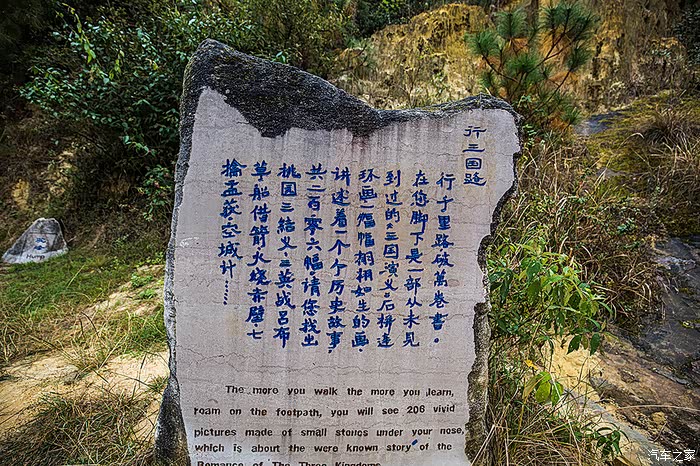 行三国迹
行千里路破萬卷書。
在您脚下是一部从未見
到过的《三国演义》石拼连
环画一幅幅栩栩如生的画.
讲述着一个个历史故事.
共二百零六幅.请您找出
桃园三結义.三英战吕布
草船借箭火烧赤壁.七
擒孟获.空城计……
The more you walk the more you learn,
roam on the footpath, you will see 206 vivid
pictures made of small stones under your nose,
which is about the were known story of the
Romance of The Three Kingdoms
汽车之家